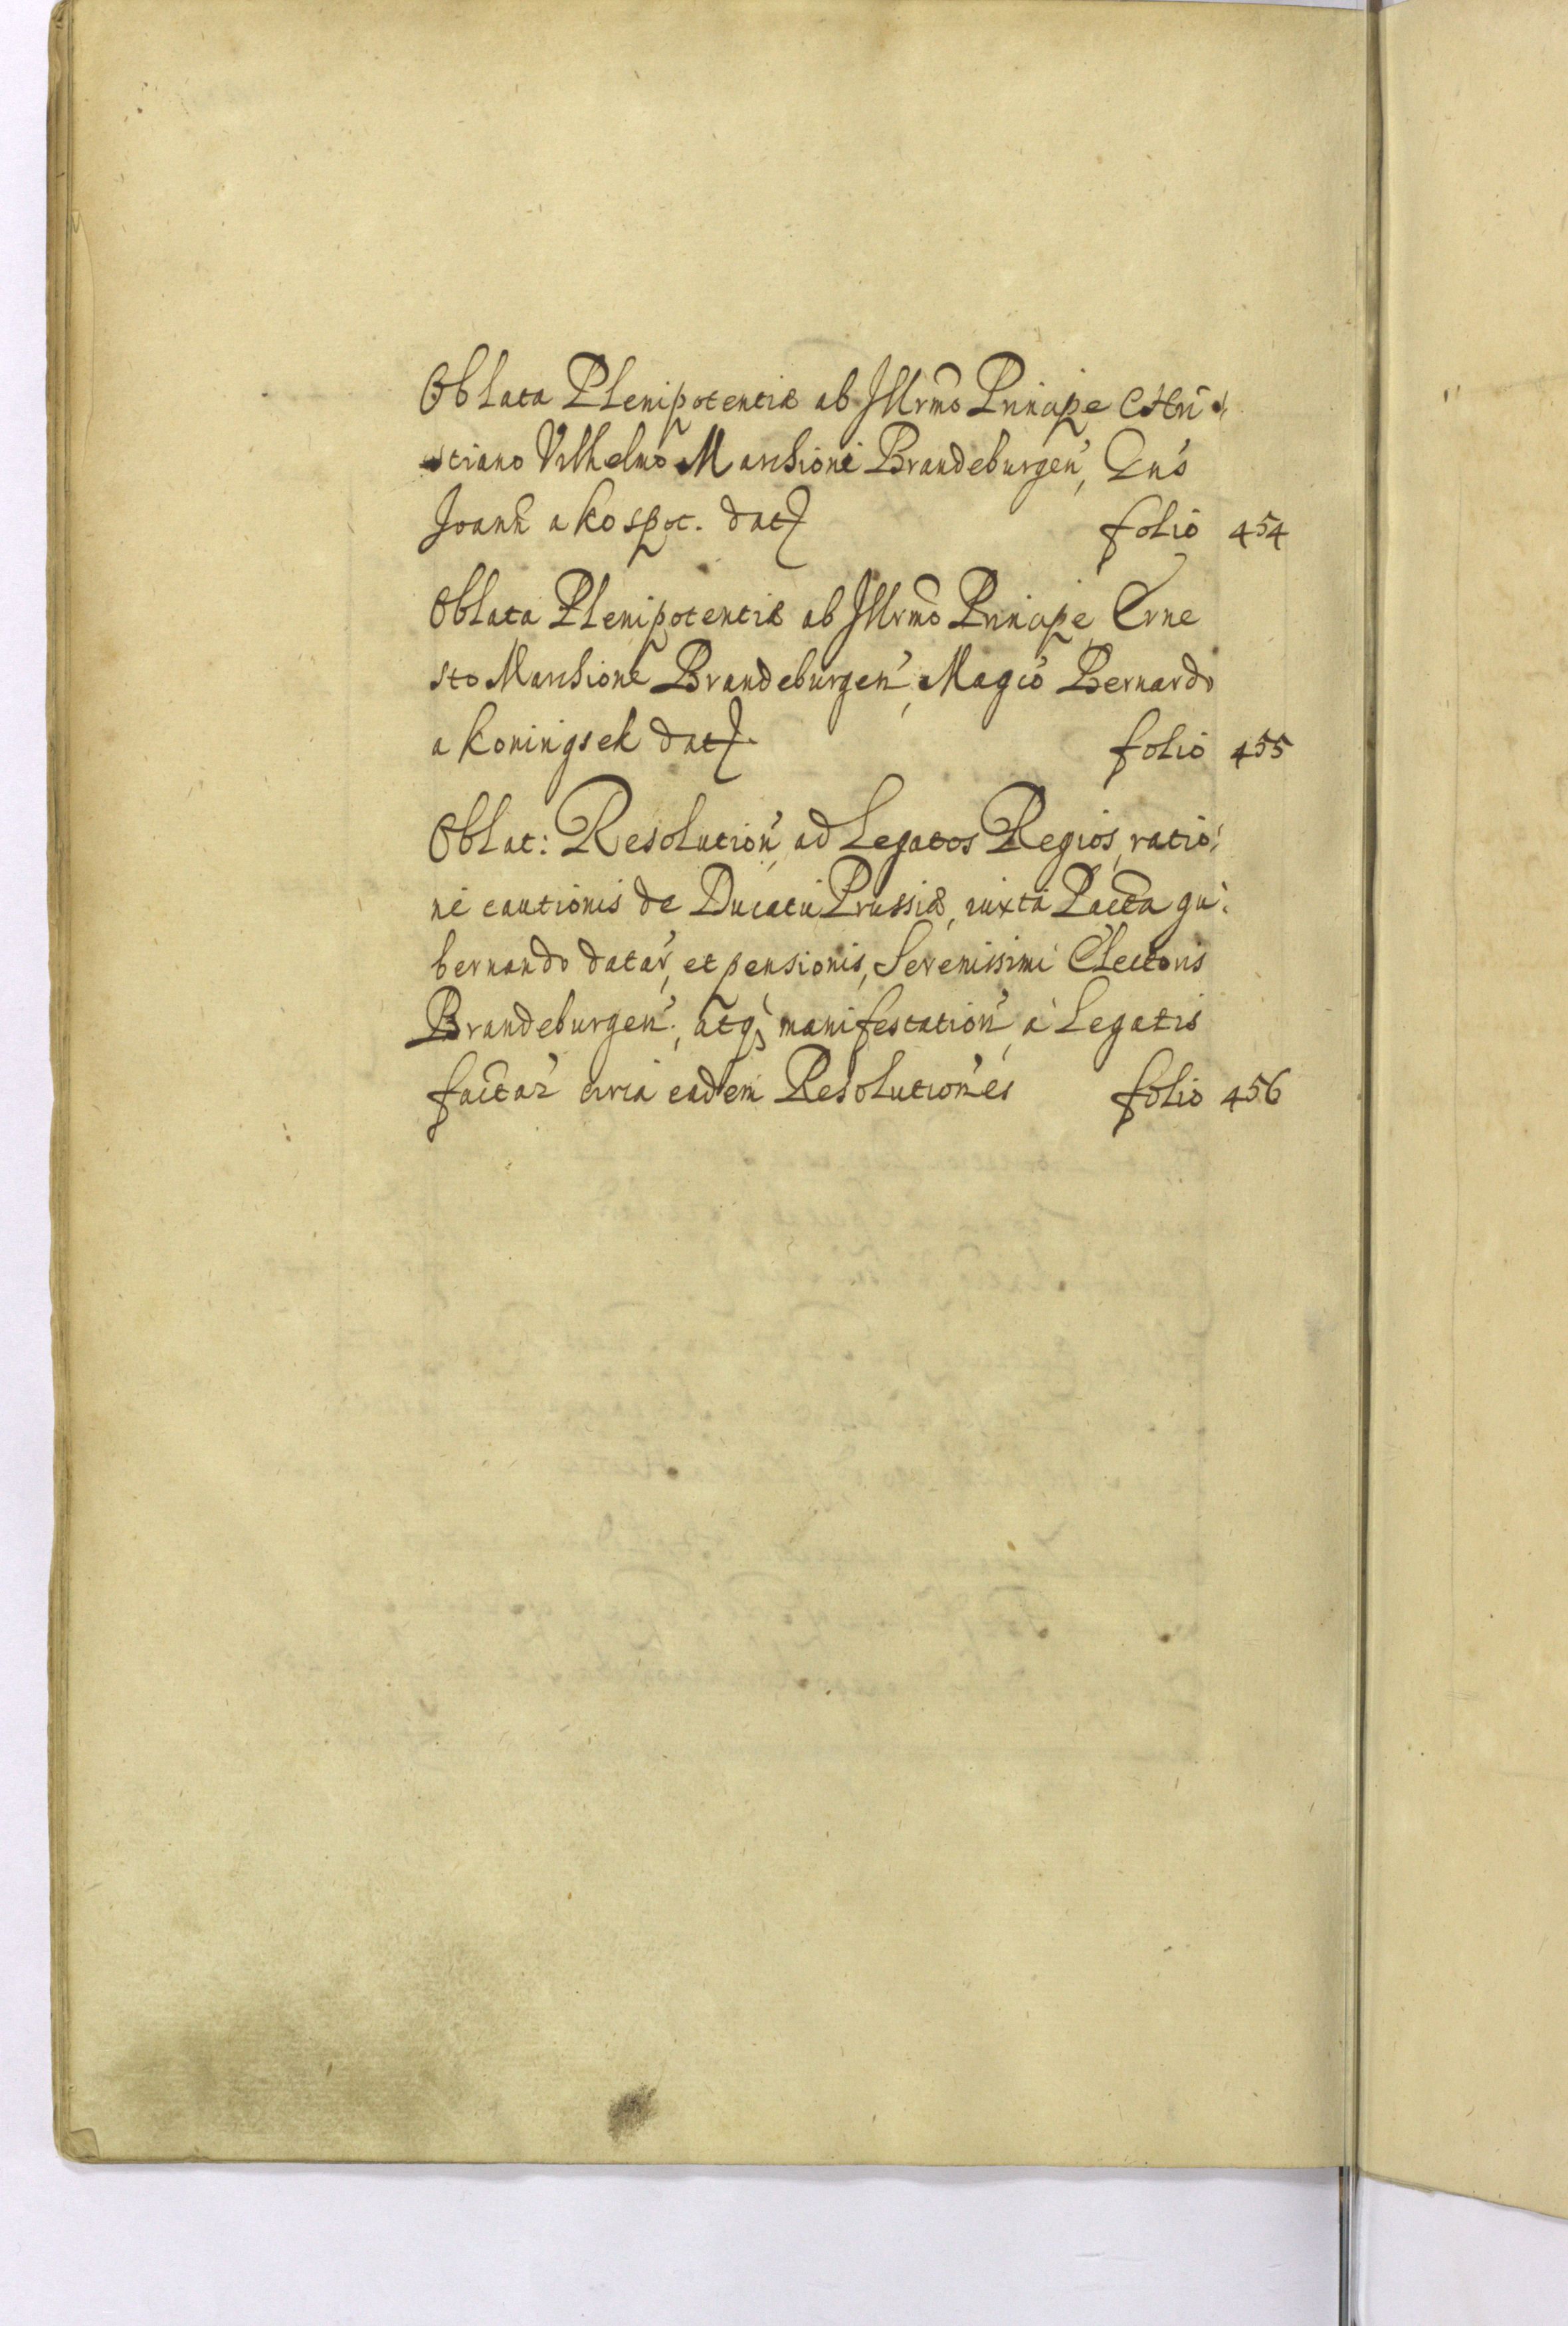 Oblata Plenipotentiæ ab Illrmo Principe Chri
stiano Vilhelmo Marchione Brandeburgen, Gnso
Joann a Kospot. dat
folio 454
Oblata Plenipotentiæ ab Illrmo Principe Erne
sto Marchione Brandeburgen, Magco Bernardo
a Koningsek dat
folio 455
Oblat: Resolution ad Legatos Regios, ratio:
ne cautionis de Ducatu Prussiæ, iuxta Pacta gu:
bernando datar, et pensionis, Serenissimi Electoris
Brandeburgen, atq manifestation a Legatis
factar circa eadem Resolutiones
folio 456